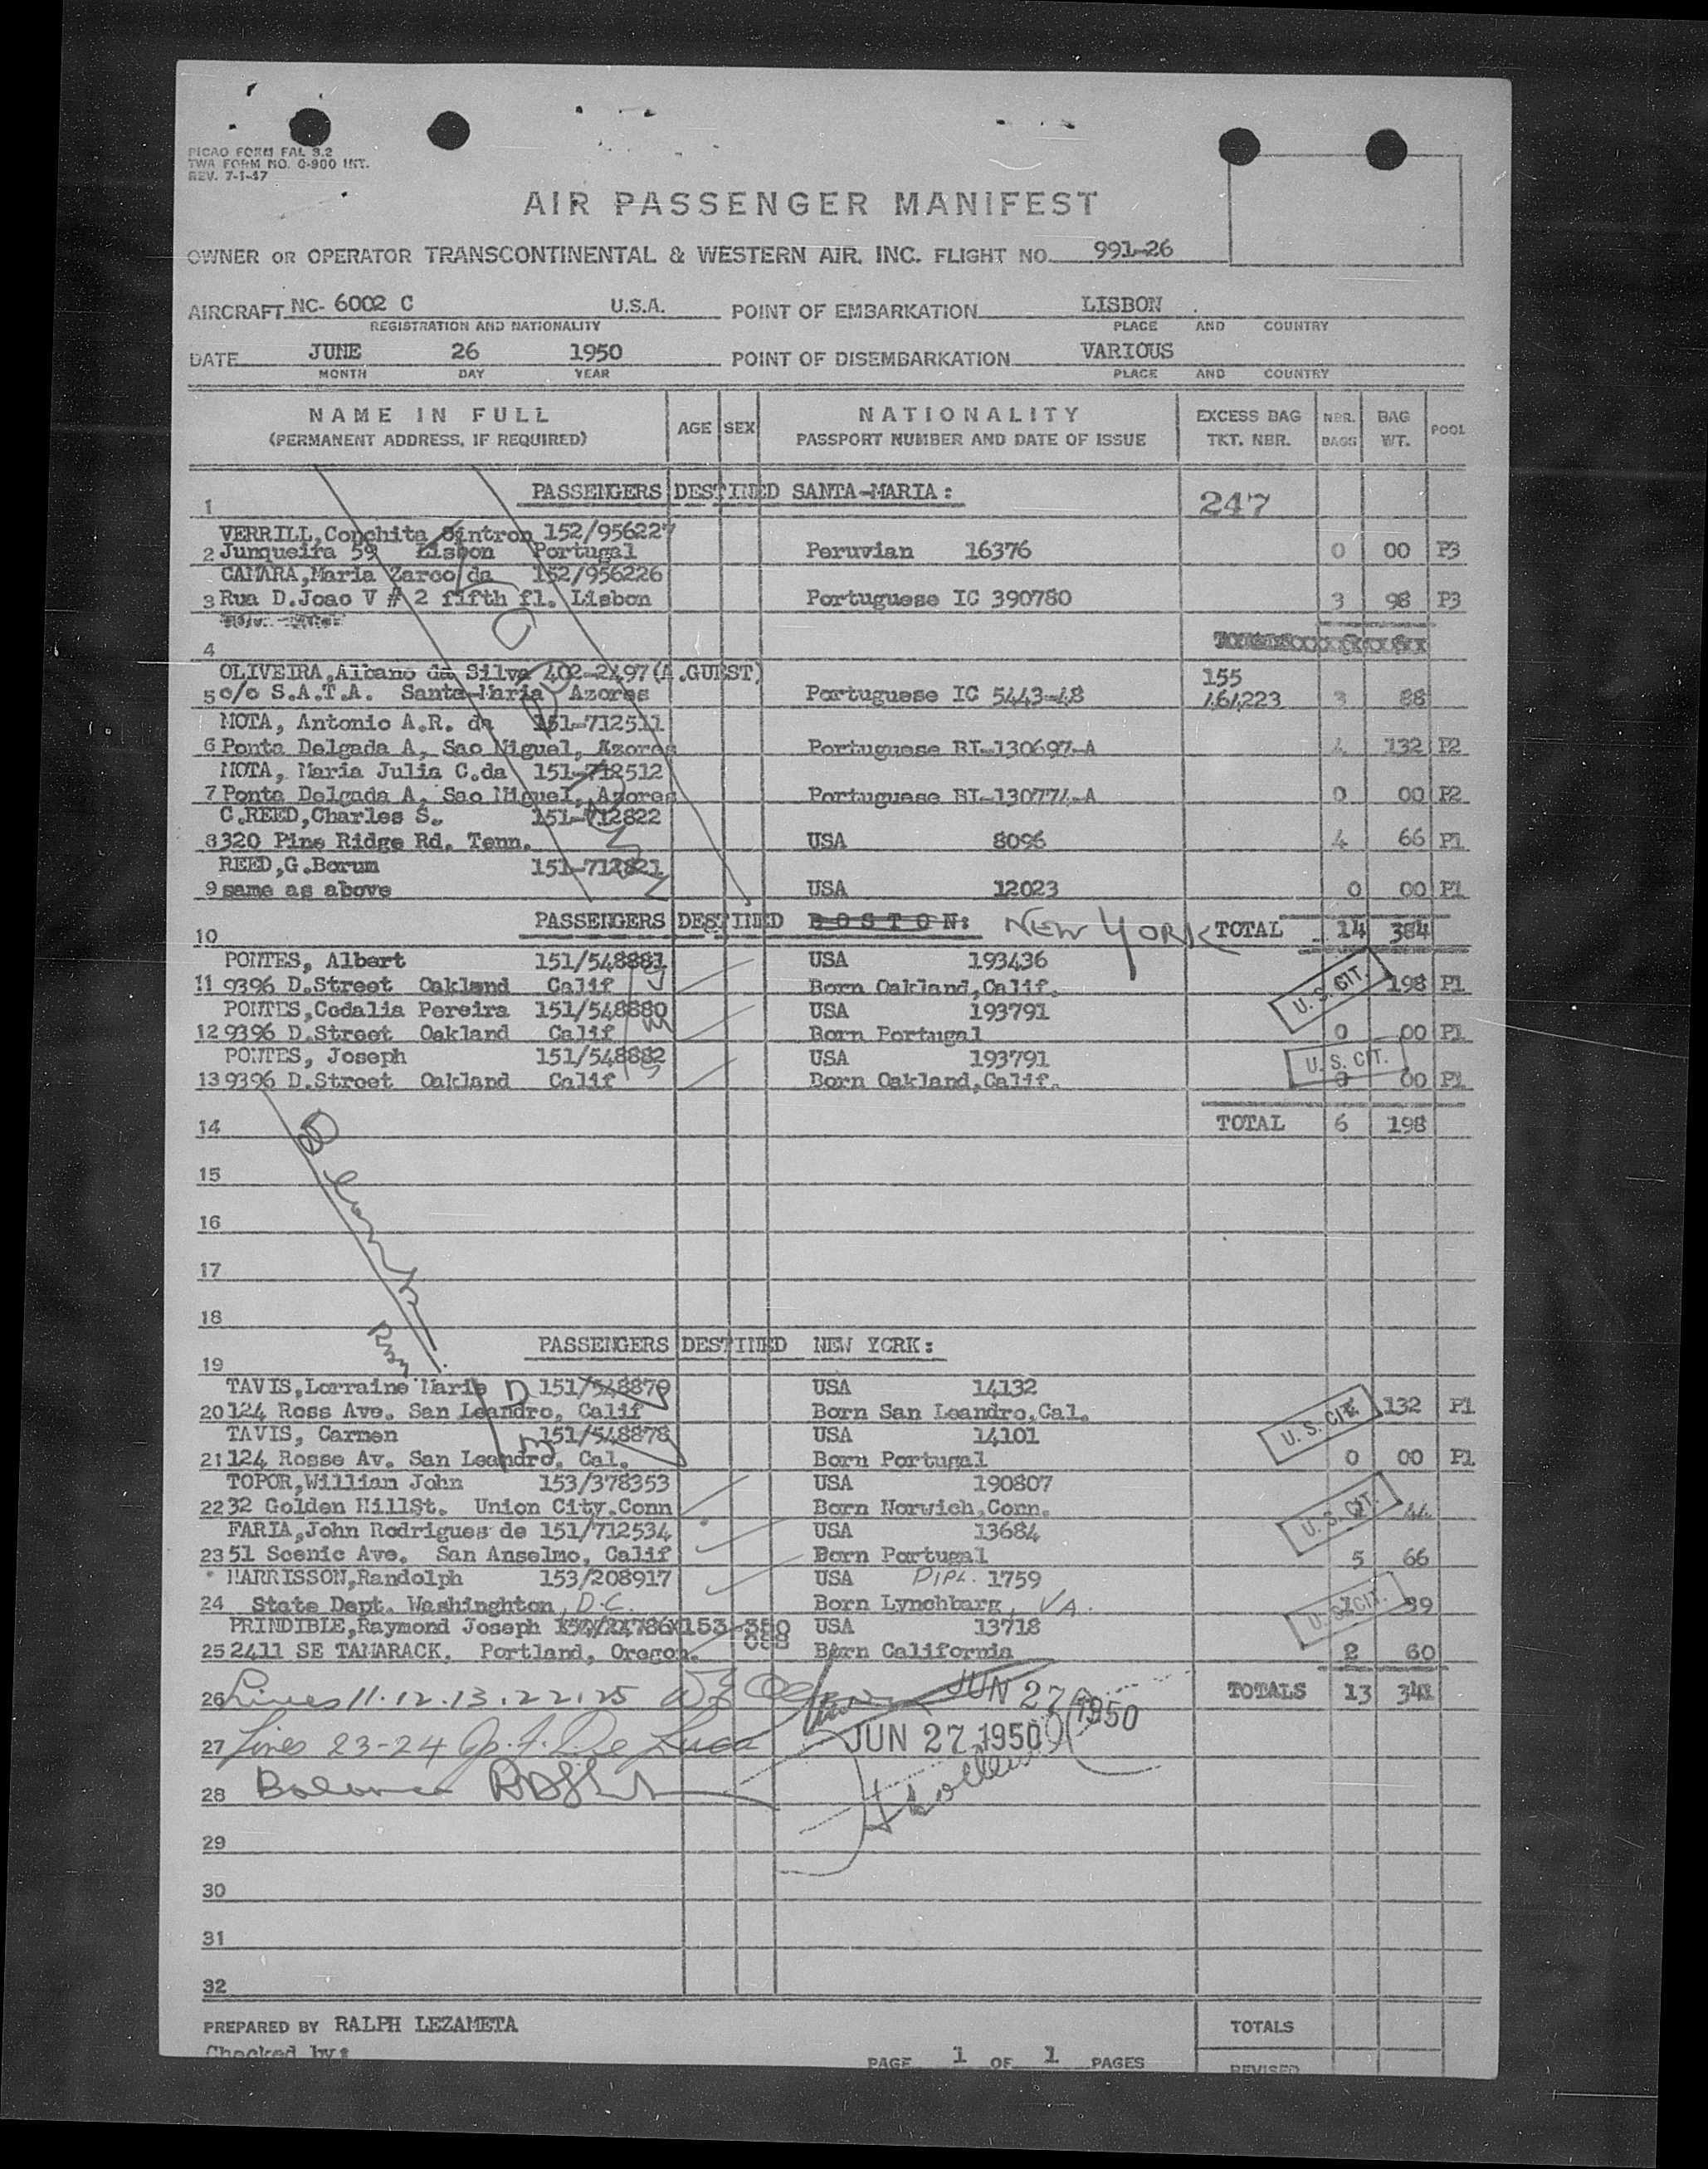 PICAO FORM FAL 3.2
TWA FORM NO. O-900 INT.
REV. 7-1-47
AIR PASSENGER MANIFEST
OWNER OR OPERATOR TRANSCONTINENTAL & WESTERN AIR, INC. FLIGHT NO. 991-26
AIRCRAFT NC- 6002 C U.S.A. POINT OF EMBARKATION LISBON
REGISTRATION AND NATIONALITY PLACE AND COUNTRY
DATE JUNE 26 1950 POINT OF DISEMBARKATION VARIOUS
MONTH DAY YEAR PLACE AND COUNTRY
NAME IN FULL AGE SEX NATIONALITY EXCESS BAG NBR. BAG POOL
(PERMANENT ADDRESS, IF REQUIRED) PASSPORT NUMBER AND DATE OF ISSUE TKT. NBR. BAGS WT.
1 PASSENGERS DESTINED SANTA-MARIA: 247
VERRILL,Conchita Sintron 152/956227
2 Junqueira 59 Lisbon Portugal Peruvian 16376 0 00 P3
CAMARA,Maria Zarco da 152/956226
3 Rua D.Joao V # 2 fifth fl. Lisbon Portuguese IC 390780 3 98 P3
4
OLIVEIRA,Albano da Silva 402-2497(A.GUEST) 155
5 c/o S.A.T.A. Santa-Maria Azores Portuguese IC 5443-48 464223 3 88
MOTA, Antonio A.R. da 151-712511
6 Ponta Delgada A, Sao Miguel, Azores Portuguese BI-130697-A 4 132 P2
MOTA, Maria Julia C.da 151-712512
7 Ponta Delgada A, Sao Miguel, Azores Portuguese BI-130774-A 0 00 P2
C.REED,Charles S. 151-712822
8 320 Pine Ridge Rd. Tenn. USA 8096 4 66 P1
REED,G.Borum 151-712821
9 same as above USA 12023 0 00 P1
10 PASSENGERS DESTINED BOSTON: NEW YORK TOTAL 14 384
PONTES, Albert 151/548881 USA 193436
11 9396 D.Street Oakland Calif Born Oakland,Calif. U.S. CIT. 198 P1
PONTES,Codalia Pereira 151/548880 USA 193791
12 9396 D.Street Oakland Calif Born Portugal 0 00 P1
PONTES, Joseph 151/548882 USA 193791 U.S. CIT.
13 9396 D.Street Oakland Calif Born Oakland,Calif. 0 00 P1
14 TOTAL 6 198
15
16
17
18
19 PASSENGERS DESTINED NEW YORK:
TAVIS,Lorraine Marie 151/548879 USA 14132
20 124 Ross Ave. San Leandro, Calif Born San Leandro,Cal. U.S. CIT. 132 P1
TAVIS, Carmen 151/548878 USA 14101
21 124 Rosse Av. San Leandro, Cal. Born Portugal 0 00 P1
TOPOR,Willian John 153/378353 USA 190807
22 32 Golden HillSt. Union City,Conn Born Norwich,Conn. U.S. CIT. 44
FARIA,John Rodrigues de 151/712534 USA 13684
23 51 Scenic Ave. San Anselmo, Calif Born Portugal 5 66
HARRISSON,Randolph 153/208917 USA DIPL. 1759
24 State Dept. Washinghton, D.C. Born Lynchbarg, VA. U.S. CIT. 39
PRINDIBLE,Raymond Joseph 153-350 USA 13718
088
25 2411 SE TAMARACK, Portland, Oregon. Born California 2 60
26 Lines 11.12.13.22.25 JUN 27 1950 TOTALS 13 341
27 Lines 23-24 JUN 27 1950
28 Balance
29
30
31
32
PREPARED BY RALPH LEZAMETA TOTALS
Checked by: PAGE 1 OF 1 PAGES REVISED